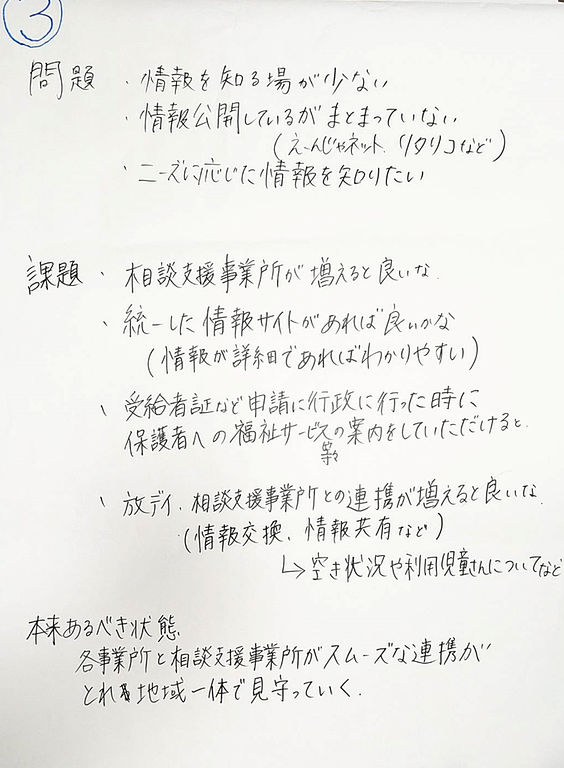 ③
問題 ・情報を知る場が少ない
・情報公開しているがまとまっていない
(えーんじゃネット、リタリコなど)
・ニーズに応じた情報を知りたい
課題 ・相談支援事業所が増えると良いな.
、統一した情報サイトがあれば良いかな
(情報が詳細であればわかりやすい)
、受給者証など申請に行政に行った時に
保護者への福祉サービスの案内をしていただけると.
等々
、放デイ、相談支援事業所との連携が増えると良いな.
(情報交換、情報共有など)
↳空き状況や利用児童さんについてなど
本来あるべき状態
各事業所と相談支援事業所がスムーズな連携が
とれ地域一体で見守っていく.